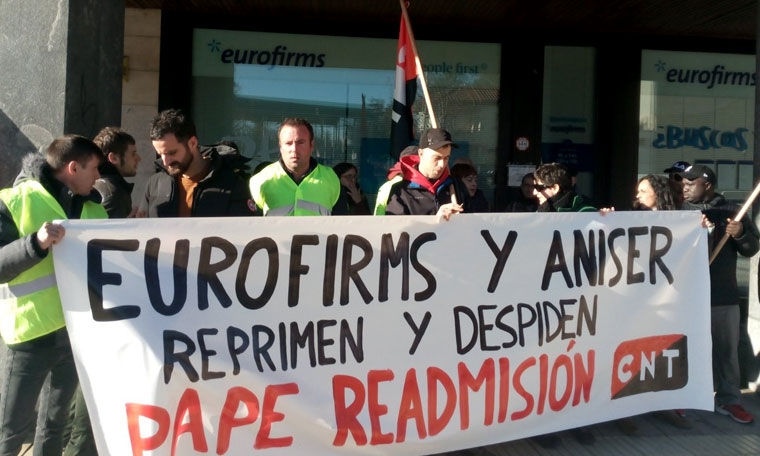 eurofirms
people first
eurofirms
eurofirms
¿BUSCAS
EUROFIRMS Y ANISER
REPRIMEN Y DESPIDEN
PAPE READMISIÓN
CNT